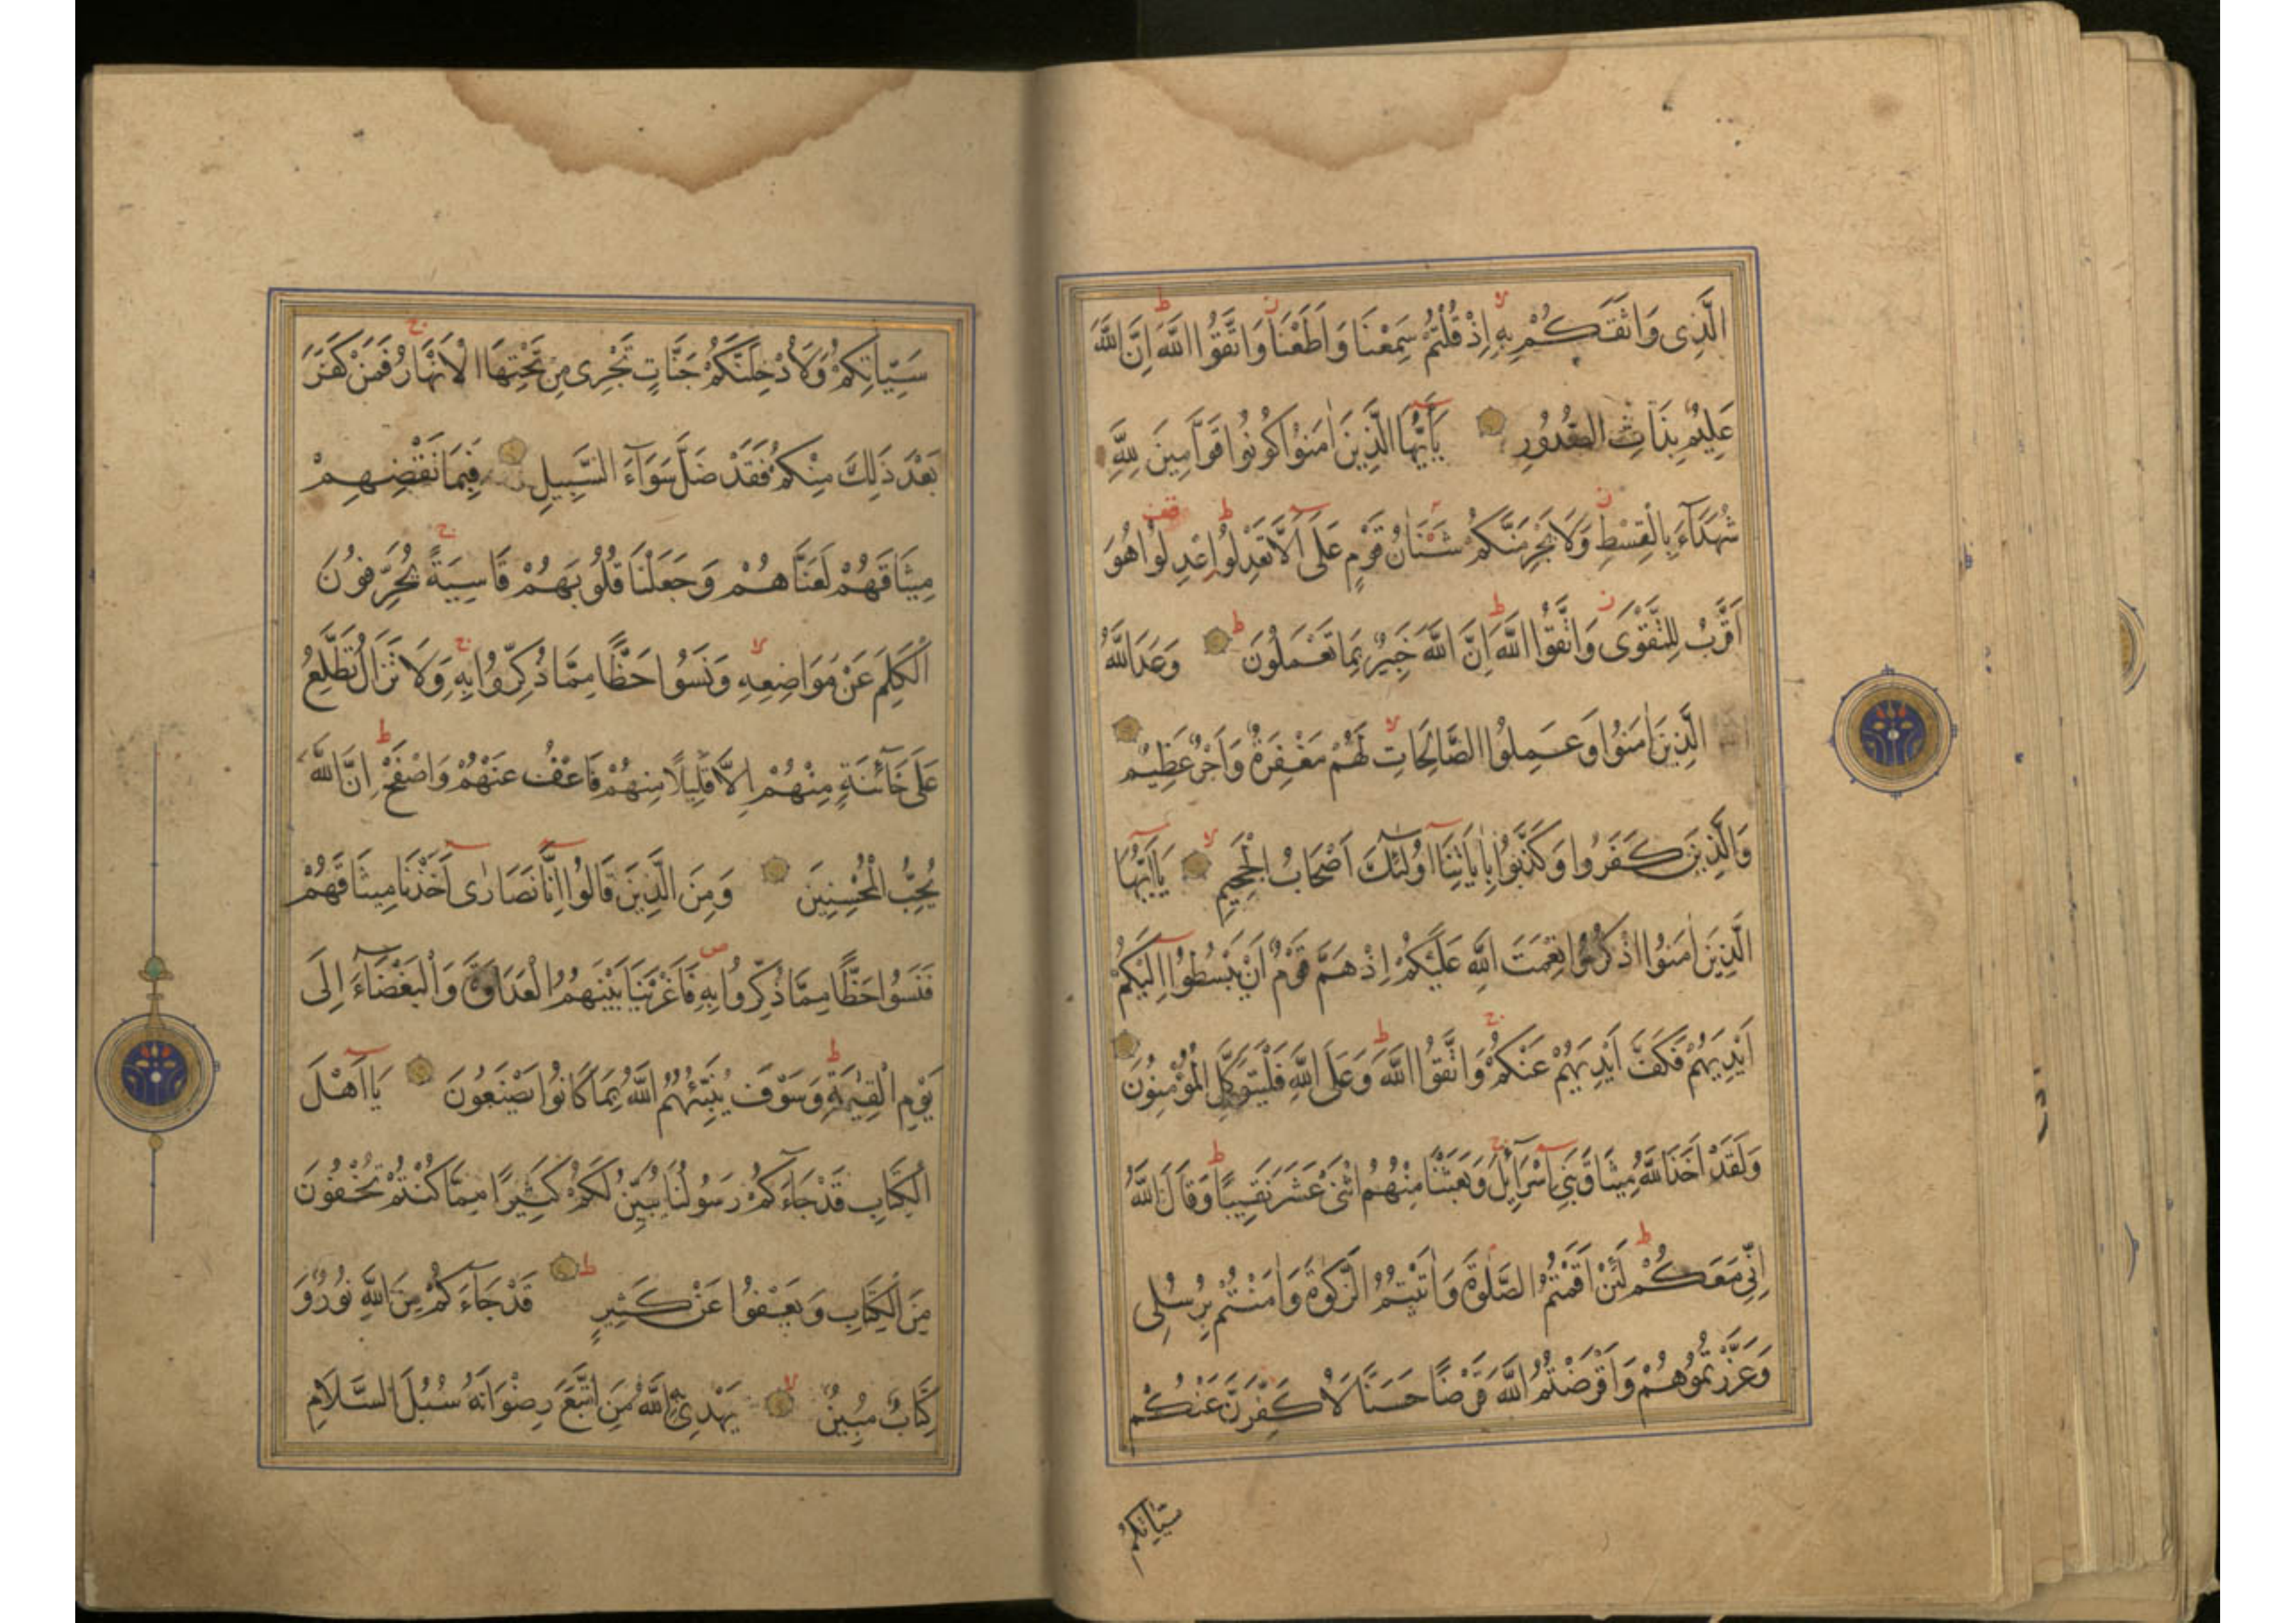 الَّذِى وَاثَقَكُمْ بِهِ اِذْ قُلْتُمْ سَمِعْنَا وَاَطَعْنَا وَاتَّقُوا اللَّهَ اِنَّ اللَّهَ
عَلِيمٌ بِذَاتِ الصُّدُورِ يَآاَيُّهَا الَّذِينَ اٰمَنُوا كُونُوا قَوَّامِينَ لِلَّهِ
شُهَدَآءَ بِالْقِسْطِ وَلَا يَجْرِمَنَّكُمْ شَنَاٰنُ قَوْمٍ عَلَى اَلَّا تَعْدِلُوا اِعْدِلُوا هُوَ
اَقْرَبُ لِلتَّقْوَى وَاتَّقُوا اللَّهَ اِنَّ اللَّهَ خَبِيرٌ بِمَا تَعْمَلُونَ وَعَدَ اللَّهُ
الَّذِينَ اٰمَنُوا وَعَمِلُوا الصَّالِحَاتِ لَهُمْ مَغْفِرَةٌ وَاَجْرٌ عَظِيمٌ
وَالَّذِينَ كَفَرُوا وَكَذَّبُوا بِاٰيَاتِنَا اُولٰئِكَ اَصْحَابُ الْجَحِيمِ يَآاَيُّهَا
الَّذِينَ اٰمَنُوا اذْكُرُوا نِعْمَتَ اللَّهِ عَلَيْكُمْ اِذْ هَمَّ قَوْمٌ اَنْ يَبْسُطُوا اِلَيْكُمْ
اَيْدِيَهُمْ فَكَفَّ اَيْدِيَهُمْ عَنْكُمْ وَاتَّقُوا اللَّهَ وَعَلَى اللَّهِ فَلْيَتَوَكَّلِ الْمُؤْمِنُونَ
وَلَقَدْ اَخَذَ اللَّهُ مِيثَاقَ بَنِى اِسْرَآئِلَ وَبَعَثْنَا مِنْهُمُ اثْنَىْ عَشَرَ نَقِيبًا وَقَالَ اللَّهُ
اِنِّى مَعَكُمْ لَئِنْ اَقَمْتُمُ الصَّلٰوةَ وَاٰتَيْتُمُ الزَّكٰوةَ وَاٰمَنْتُمْ بِرُسُلِى
وَعَزَّرْتُمُوهُمْ وَاَقْرَضْتُمُ اللَّهَ قَرْضًا حَسَنًا لَاُكَفِّرَنَّ عَنْكُمْ
سَيِّاٰتِكُمْ
سَيِّاٰتِكُمْ وَلَاُدْخِلَنَّكُمْ جَنَّاتٍ تَجْرِى مِنْ تَحْتِهَا الْاَنْهَارُ فَمَنْ كَفَرَ
بَعْدَ ذَلِكَ مِنْكُمْ فَقَدْ ضَلَّ سَوَآءَ السَّبِيلِ فَبِمَا نَقْضِهِمْ
مِيثَاقَهُمْ لَعَنَّاهُمْ وَجَعَلْنَا قُلُوبَهُمْ قَاسِيَةً يُحَرِّفُونَ
الْكَلِمَ عَنْ مَوَاضِعِهِ وَنَسُوا حَظًّا مِمَّا ذُكِّرُوا بِهِ وَلَا تَزَالُ تَطَّلِعُ
عَلَى خَآئِنَةٍ مِنْهُمْ اِلَّا قَلِيلًا مِنْهُمْ فَاعْفُ عَنْهُمْ وَاصْفَحْ اِنَّ اللَّهَ
يُحِبُّ الْمُحْسِنِينَ وَمِنَ الَّذِينَ قَالُوا اِنَّا نَصَارٰى اَخَذْنَا مِيثَاقَهُمْ
فَنَسُوا حَظًّا مِمَّا ذُكِّرُوا بِهِ فَاَغْرَيْنَا بَيْنَهُمُ الْعَدَاوَةَ وَالْبَغْضَآءَ اِلَى
يَوْمِ الْقِيٰمَةِ وَسَوْفَ يُنَبِّئُهُمُ اللَّهُ بِمَا كَانُوا يَصْنَعُونَ يَآاَهْلَ
الْكِتَابِ قَدْ جَآءَكُمْ رَسُولُنَا يُبَيِّنُ لَكُمْ كَثِيرًا مِمَّا كُنْتُمْ تُخْفُونَ
مِنَ الْكِتَابِ وَيَعْفُوا عَنْ كَثِيرٍ قَدْ جَآءَكُمْ مِنَ اللَّهِ نُورٌ وَ
كِتَابٌ مُبِينٌ يَهْدِى بِهِ اللَّهُ مَنِ اتَّبَعَ رِضْوَانَهُ سُبُلَ السَّلَامِ